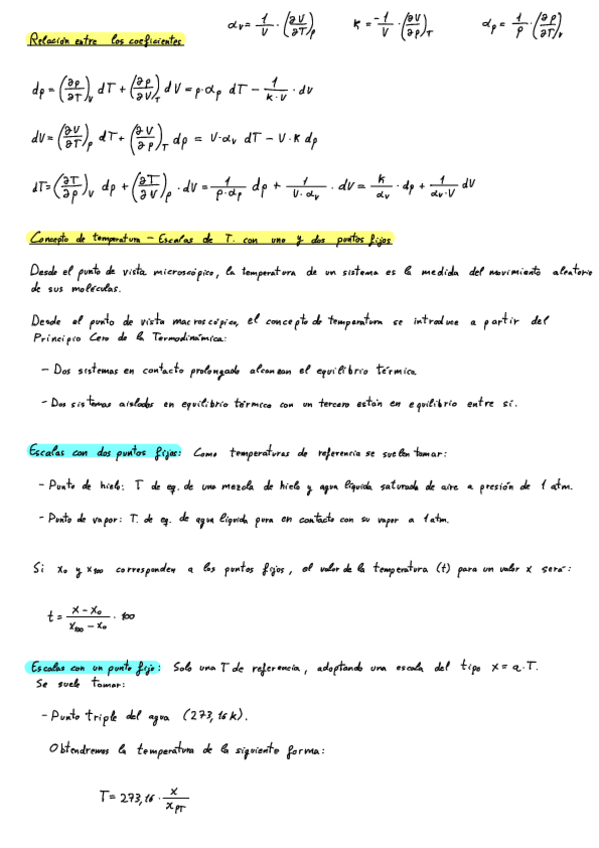 αv = 1/V · (∂V/∂T)p    K = -1/V · (∂V/∂p)T    αp = 1/p · (∂p/∂T)v
Relación entre los coeficientes
dp = (∂p/∂T)V dT + (∂p/∂V)T dV = p·αp dT - 1/(K·V) · dV
dV = (∂V/∂T)p dT + (∂V/∂p)T dp = V·αv dT - V·K dp
dT = (∂T/∂p)V dp + (∂T/∂V)p · dV = 1/(p·αp) dp + 1/(V·αv) · dV = K/αv · dp + 1/(αv·V) dV
Concepto de temperatura - Escalas de T. con uno y dos puntos fijos
Desde el punto de vista microscópico, la temperatura de un sistema es la medida del movimiento aleatorio
de sus moléculas.
Desde el punto de vista macroscópico, el concepto de temperatura se introduce a partir del
Principio Cero de la Termodinámica:
- Dos sistemas en contacto prolongado alcanzan el equilibrio térmico.
- Dos sistemas aislados en equilibrio térmico con un tercero están en equilibrio entre sí.
Escalas con dos puntos fijos: Como temperaturas de referencia se suelen tomar:
- Punto de hielo: T de eq. de una mezcla de hielo y agua líquida saturada de aire a presión de 1 atm.
- Punto de vapor: T. de eq. de agua líquida pura en contacto con su vapor a 1 atm.
Si x₀ y x₁₀₀ corresponden a los puntos fijos, el valor de la temperatura (t) para un valor x será:
t = (x - x₀)/(x₁₀₀ - x₀) · 100
Escalas con un punto fijo: Solo una T de referencia, adoptando una escala del tipo x = a·T.
Se suele tomar:
- Punto triple del agua (273,16 K).
Obtendremos la temperatura de la siguiente forma:
T = 273,16 · x/xPT